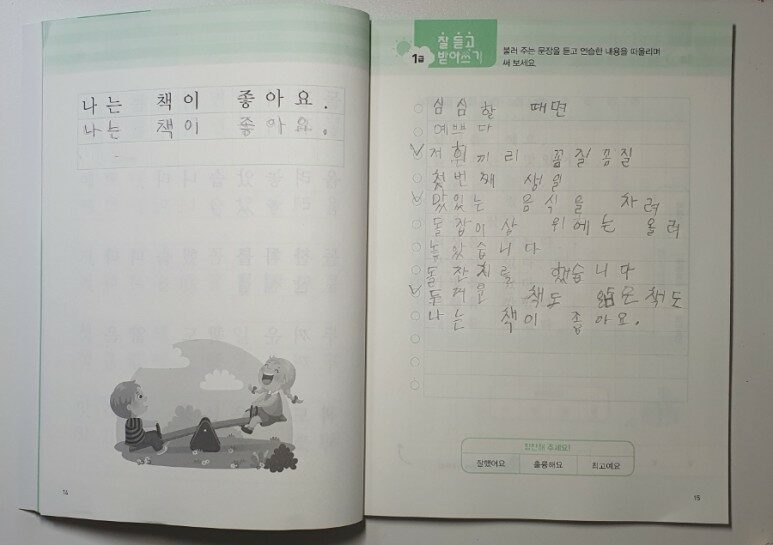 나는 책이 좋아요.
나는 책이 좋아요.
14
1급
잘 듣고
받아쓰기
불러 주는 문장을 듣고 연습한 내용을 떠올리며
써 보세요
심심할 때면
예쁘다
저 흰끼리 꼼질꼼질
첫번째 생일
맛있는 음식을 차려
돌잡이상 위에는 올려
놓았습니다
돌잔치를 했습니다
두꺼운 책도 얇은책도
나는 책이 좋아요.
칭찬해 주세요!
잘했어요 훌륭해요 최고예요
15